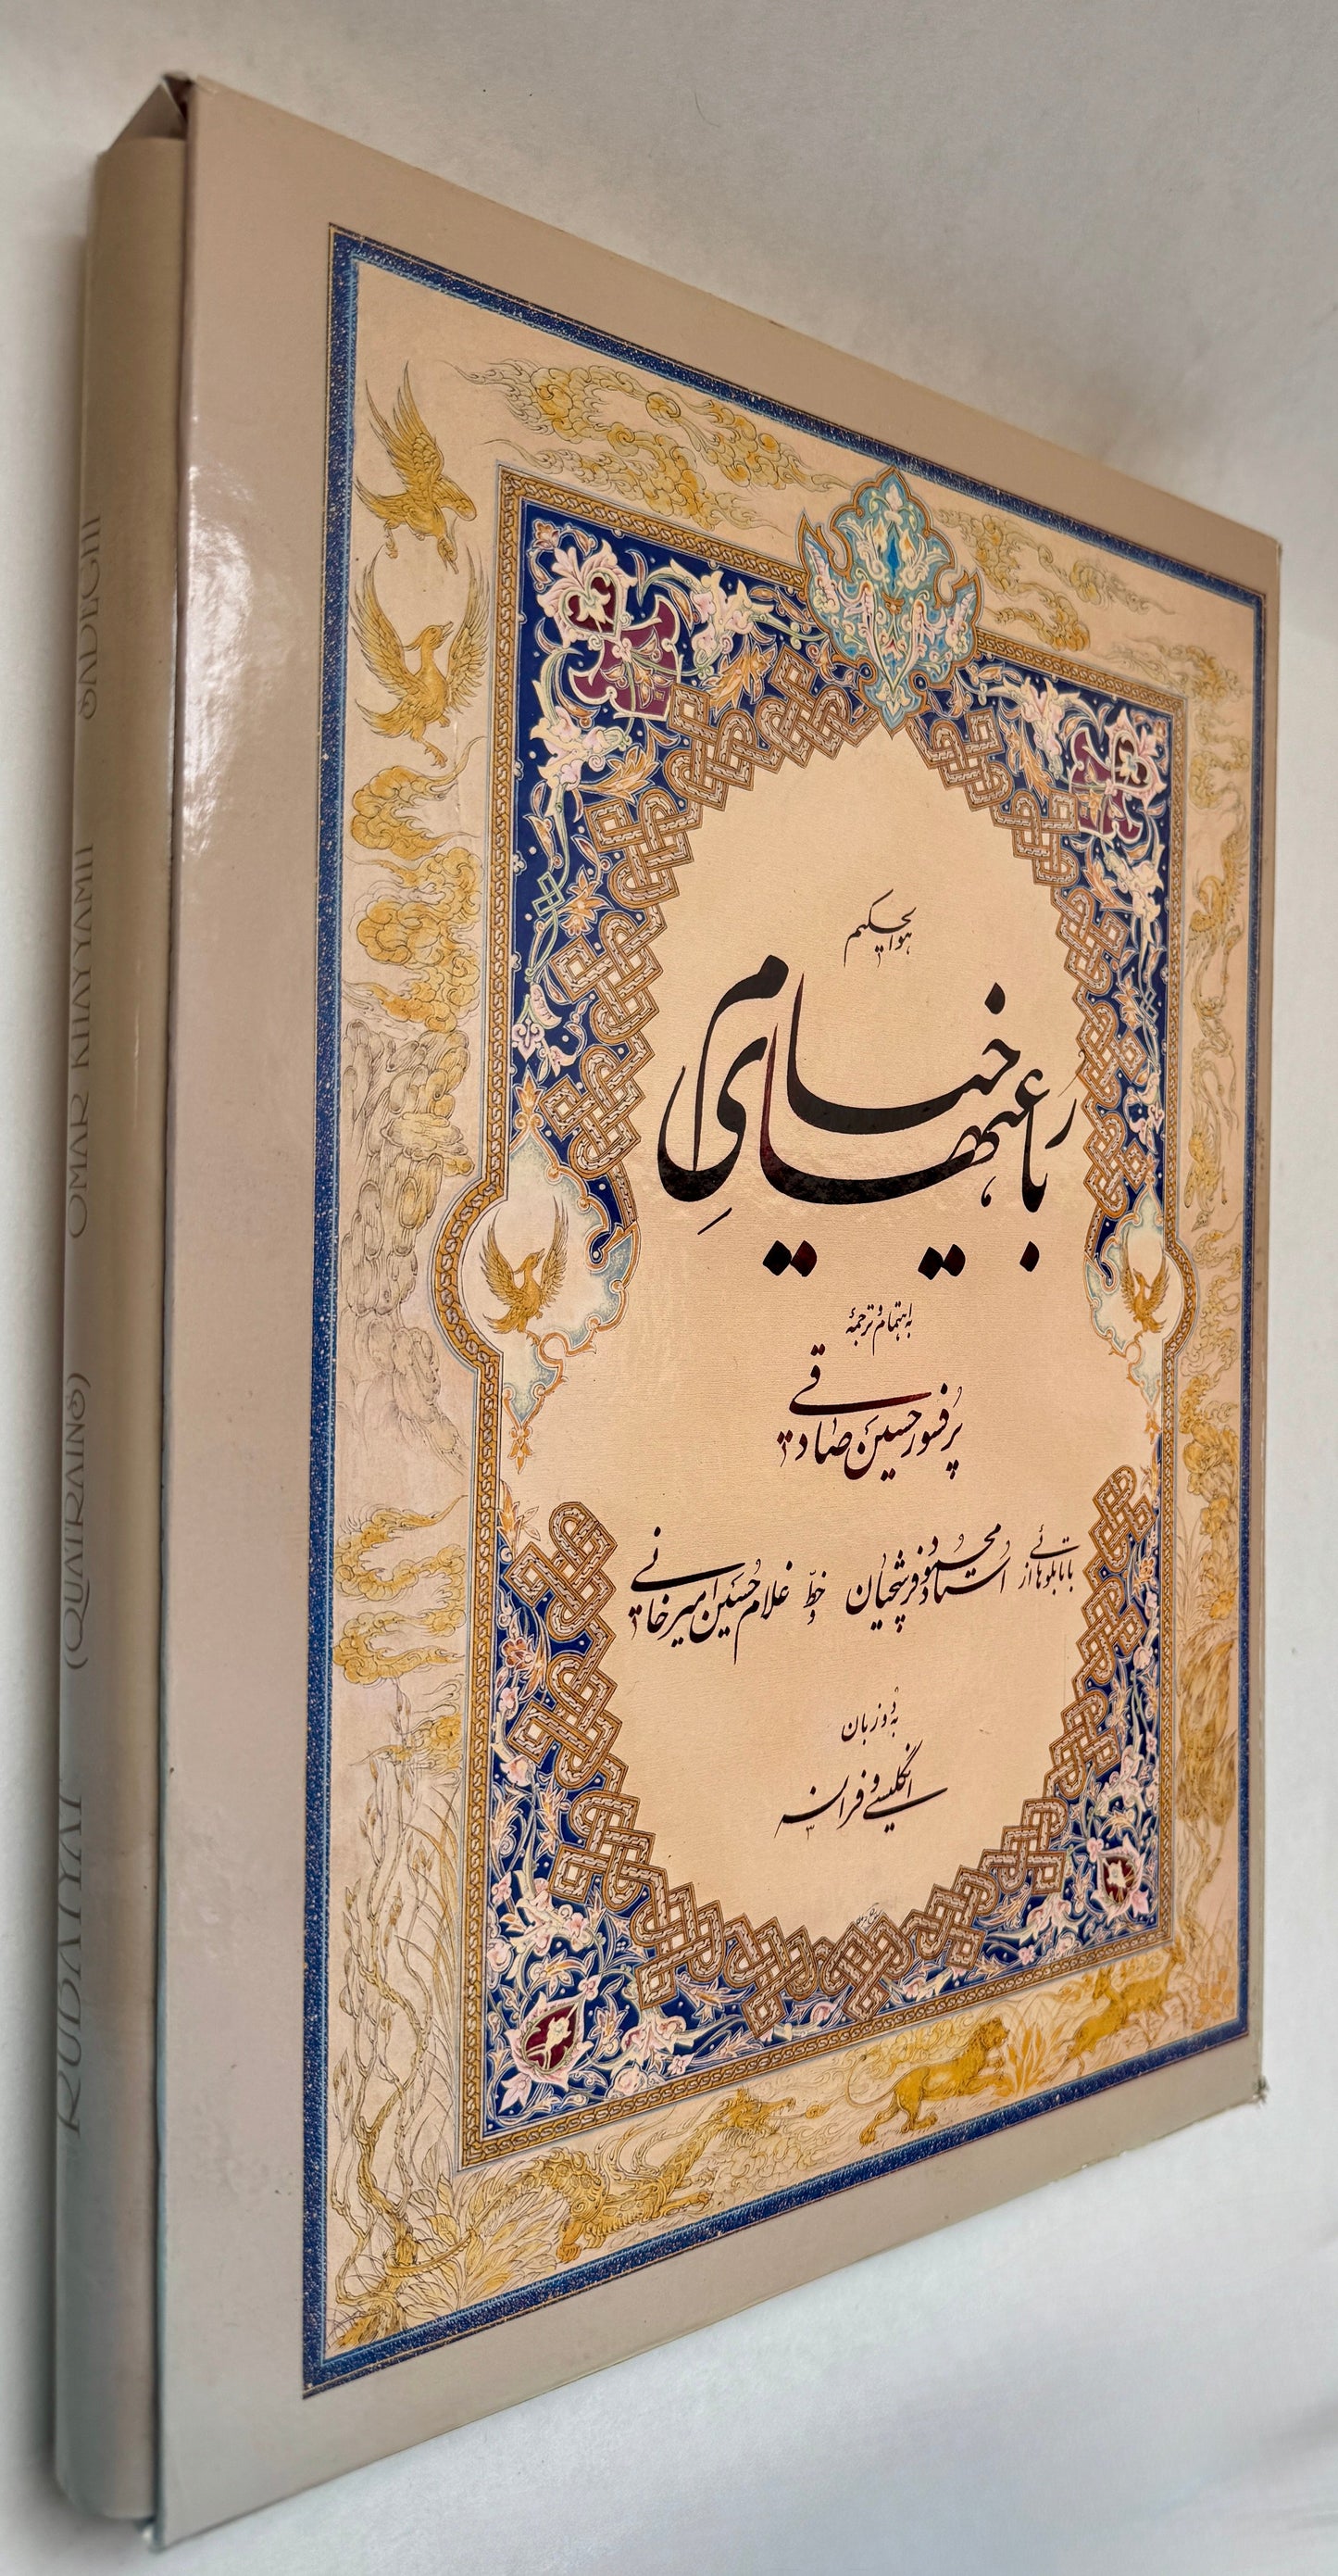 هوالحکیم
رباعیهای خیام
به اهتمام و ترجمهٔ
پرفسور حسین صادقی
با تابلوهائی از استاد محمود فرشچیان و خطّ غلامحسین امیرخانی
به دو زبان
انگلیسی و فرانسه
RUBAIYAT (QUATRAINS) OMAR KHAYYAMII SADEGHI